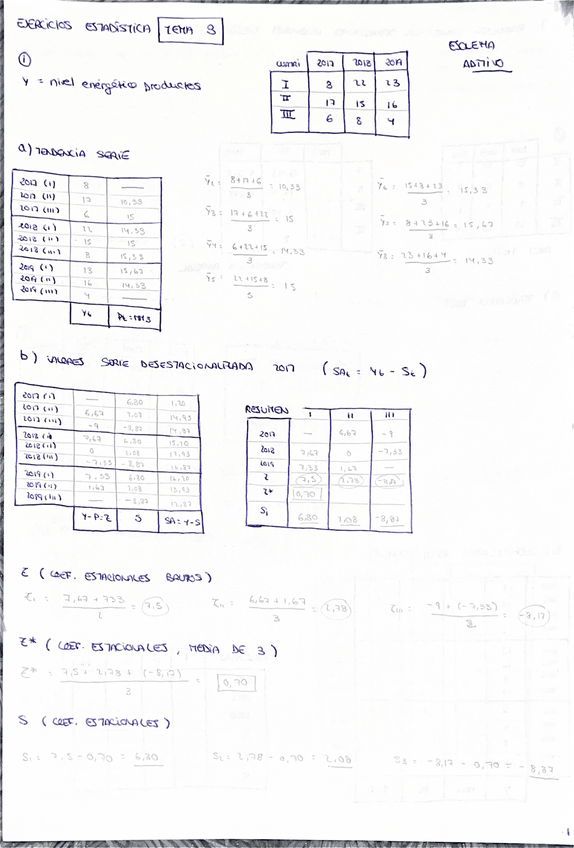 EJERCICIOS ESTADÍSTICA TEMA 3
ESQUEMA ADITIVO
①
Y = nivel energético productos
cuatri 2017 2018 2019
I 8 22 23
II 17 15 16
III 6 8 4
a) TENDENCIA SERIE
2017 (I) 8 —
2017 (II) 17 10,33
2017 (III) 6 15
2018 (I) 22 14,33
2018 (II) 15 15
2018 (III) 8 15,33
2019 (I) 23 15,67
2019 (II) 16 14,33
2019 (III) 4 —
Yt
Ȳ2 = 8+17+6 / 3 = 10,33
Ȳ3 = 17+6+22 / 3 = 15
Ȳ4 = 6+22+15 / 3 = 14,33
Ȳ5 = 22+15+8 / 3 = 15
Ȳ6 = 15+8+23 / 3 = 15,33
Ȳ7 = 8+23+16 / 3 = 15,67
Ȳ8 = 23+16+4 / 3 = 14,33
b) VALORES SERIE DESESTACIONALIZADA 2017 (SAt = Yt - St)
2017 (I) — 6,80 1,20
2017 (II) 6,67 2,08 14,92
2017 (III) -9 -8,87 14,87
2018 (I) 7,67 6,80 15,20
2018 (II) 0 2,08 12,92
2018 (III) -7,33 -8,87 16,87
2019 (I) 7,33 6,80 16,20
2019 (II) 1,67 2,08 13,92
2019 (III) — -8,87 12,87
Y-P=Z S SA=Y-S
RESUMEN I II III
2017 — 6,67 -9
2018 7,67 0 -7,33
2019 7,33 1,67 —
Z 7,5 2,78 -8,17
Z* 0,70
Si 6,80 2,08 -8,87
Z (COEF. ESTACIONALES BRUTOS)
ZI = 7,67 + 7,33 / 2 = 7.5
ZII = 6,67 + 1,67 / 3 = 2,78
ZIII = -9 + (-7,33) / 2 = -8,17
Z* (COEF. ESTACIONALES, MEDIA DE 3)
Z* = 7,5 + 2,78 + (-8,17) / 3 = 0,70
S (COEF. ESTACIONALES)
S1 = 7.5 - 0,70 = 6,80
S2 = 2,78 - 0,70 = 2,08
S3 = -8,17 - 0,70 = -8,87